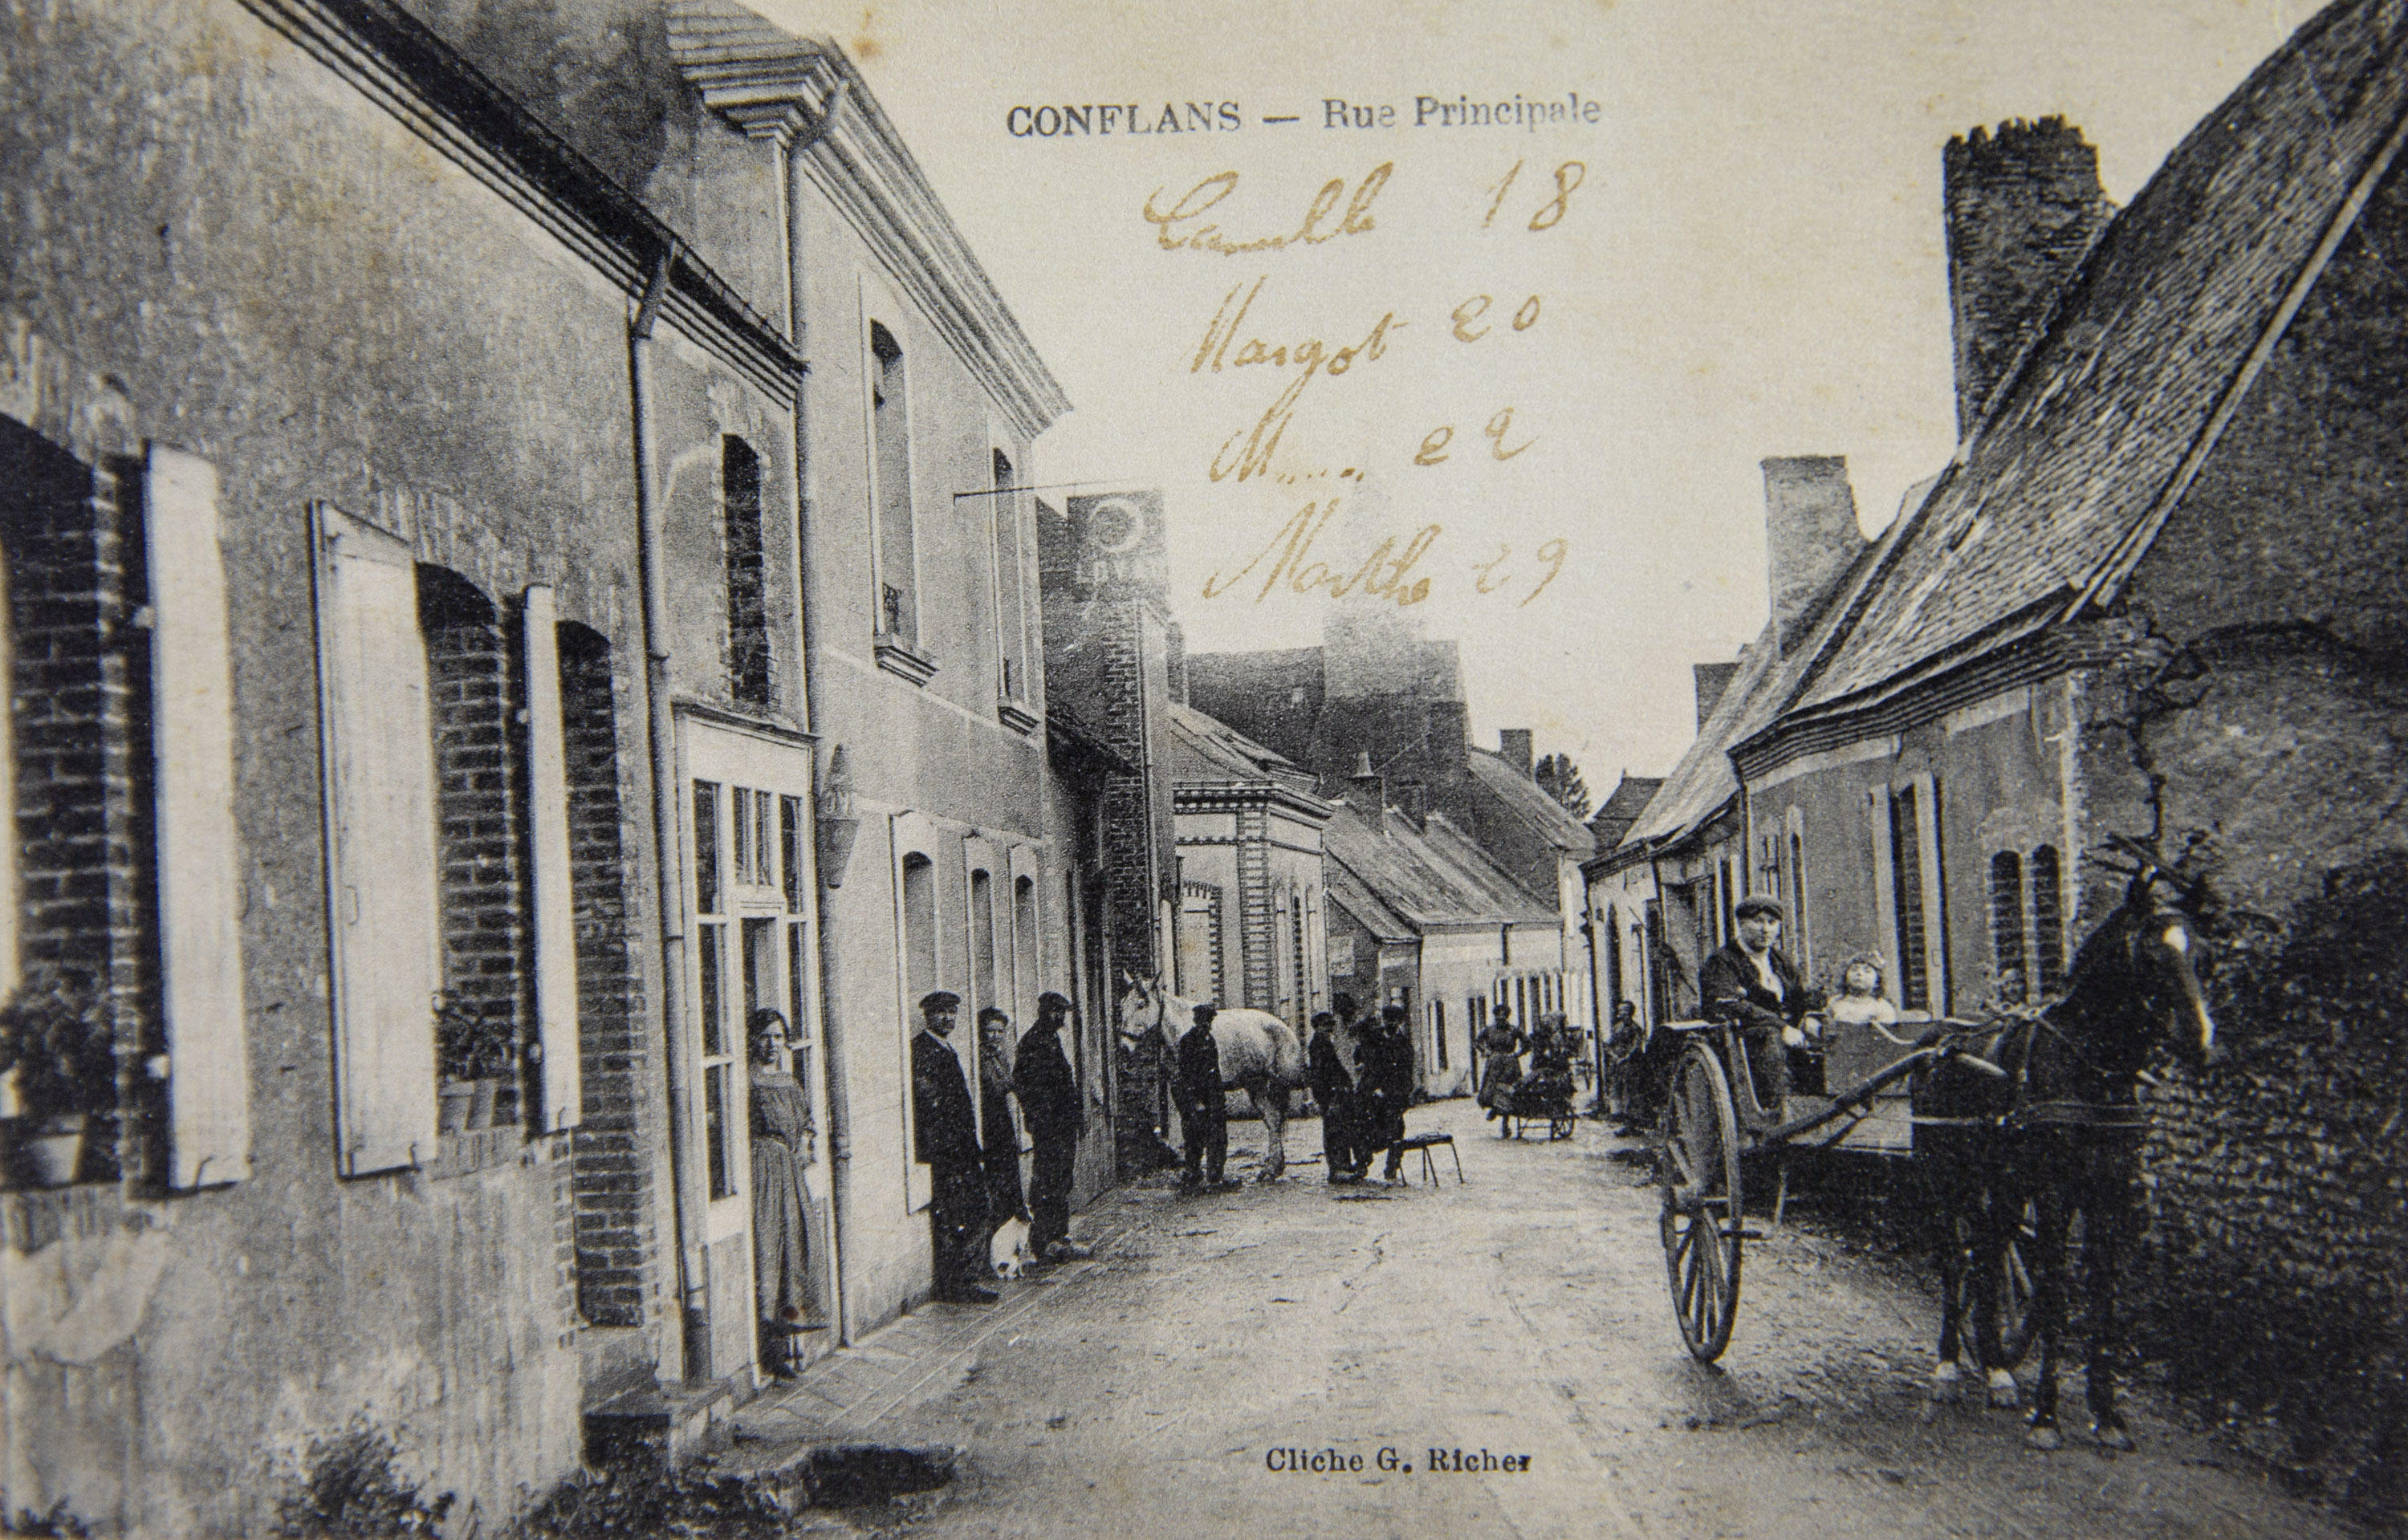 CONFLANS — Rue Principale
Camille 18
Margot 20
M..... 22
Marthe 29
Cliche G. Richer